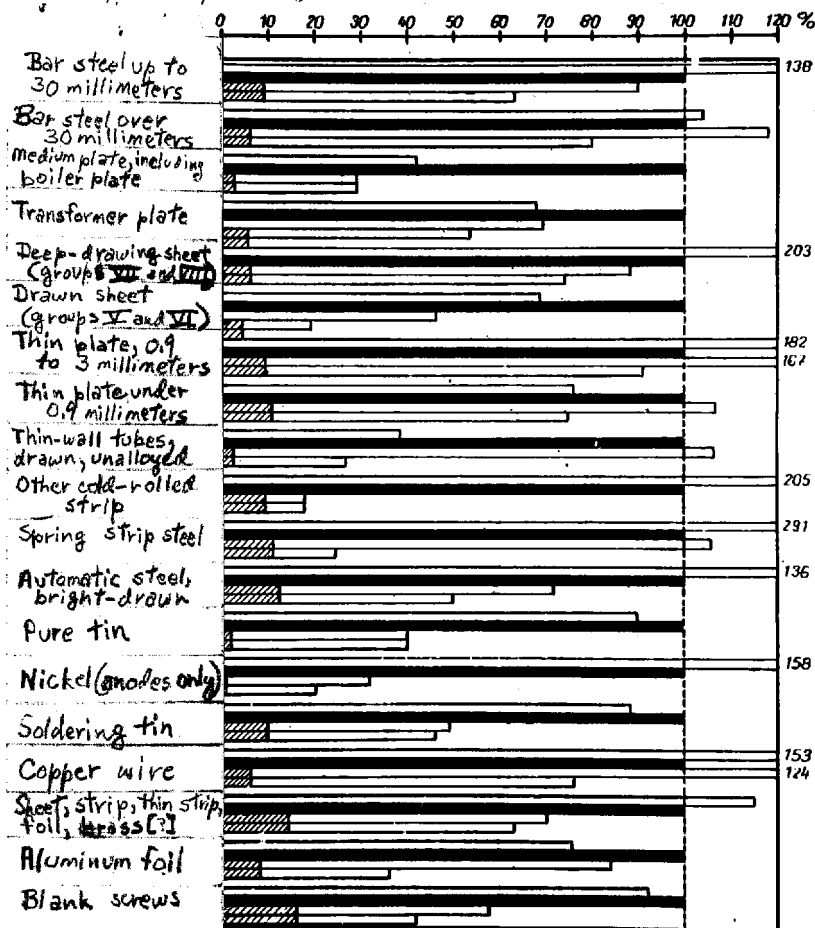 0 10 20 30 40 50 60 70 80 90 100 110 120 %
Bar steel up to
30 millimeters
138
Bar steel over
30 millimeters
medium plate, including
boiler plate
Transformer plate
Deep-drawing sheet
(groups VII and VIII)
203
Drawn sheet
(groups V and VI)
Thin plate, 0.9
to 3 millimeters
182
167
Thin plate under
0.9 millimeters
Thin-wall tubes,
drawn, unalloyed
Other cold-rolled
strip
205
Spring strip steel
291
Automatic steel,
bright-drawn
136
Pure tin
Nickel (anodes only)
158
Soldering tin
Copper wire
153
124
Sheet, strip, thin strip,
foil, brass [?]
Aluminum foil
Blank screws